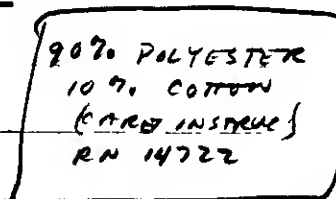 90% POLYESTER
10%. COTTON
(CARE INSTRUC)
RN 14722